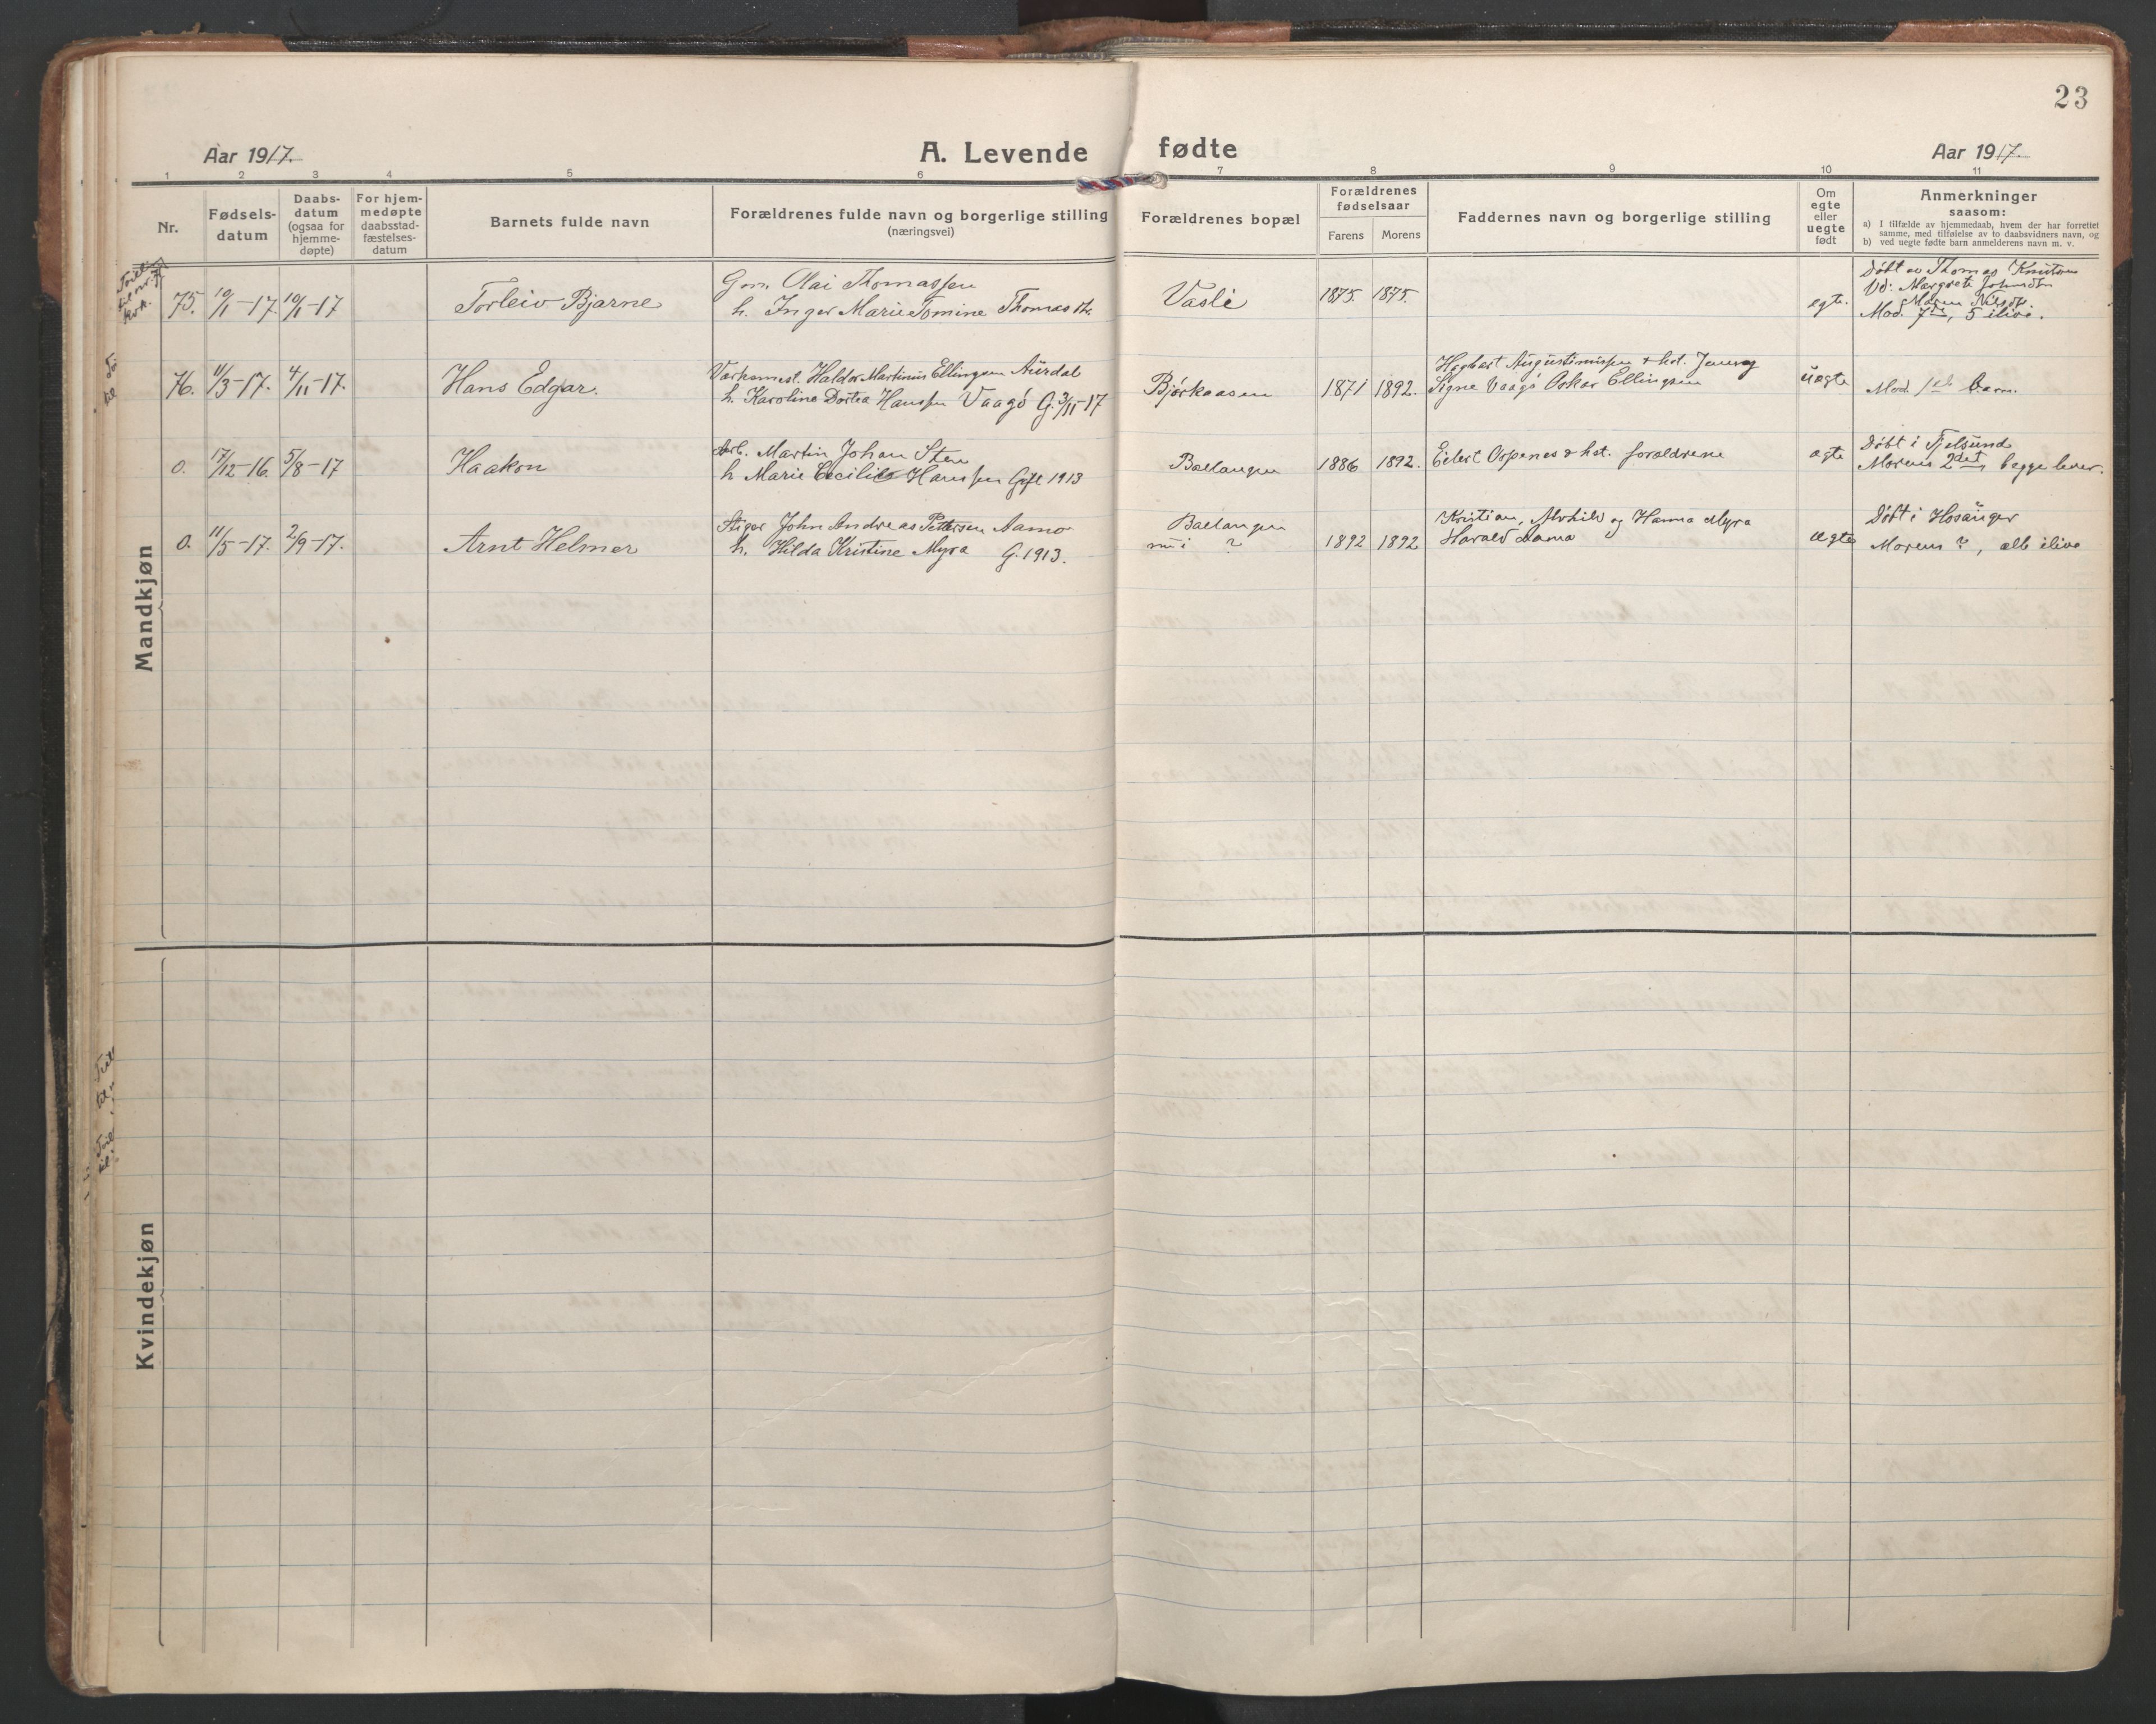 23
Aar 1917. A. Levende fødte Aar 1917.
1 2 3 4 5 6 7 8 9 10 11
Nr.
Fødsels-
datum
Daabs-
datum
(ogsaa for
hjemme-
døpte)
For hjem-
medøpte
daabsstad-
fæstelses-
datum
Barnets fulde navn
Forældrenes fulde navn og borgerlige stilling
(næringsvei)
Forældrenes bopæl
Forældrenes
fødselsaar
Farens Morens
Faddernes navn og borgerlige stilling
Om
egte
eller
uegte
født
Anmerkninger
saasom:
a) I tilfælde av hjemmedaab, hvem der har forrettet
samme, med tilføielse av to daabsvidners navn, og
b) ved uegte fødte barn anmelderens navn m. v.
Mandkjøn
75. 10/1-17. 10/1-17 Torleiv Bjarne
Gm. Olai Thomassen
h. Inger Marie Tomine Thomasdtr.
Vasli 1875. 1875. egte.
Døbt av Thomas Knutsen
Vd: Margrete Johnsdtr
Maren Nilsdtr.
Mod. 7de, 5 ilive.
76. 11/3-17. 4/11-17. Hans Edgar.
Varkemest. Haldor Martinus Ellingsen Aurdal
h. Karoline Dortea Hanssen Vaagø G. 3/11-17
Bjørkaasen 1871 1892.
Hagbart Augustinussen & hst. Jenny
Signe Vaagø Oskar Ellingsen
uegte Mod. 1ste barn.
0. 17/12-16. 5/8-17 Haakon
Arb. Martin Johan Sten
h Marie Cecilie Hanssen Gift 1913
Ballangen 1886 1892.
Eilert Orpenes & hst. foraldrene
egte
Døbt i Tjelsund
Morens 2det, begge lever.
0. 11/5-17. 2/9-17. Arnt Helmer
Stiger John Andreas Pettersen Aamo
h. Hilda Kristine Myra G. 1913.
Ballangen
nu i ? 1892 1892
Kristian, Alvhild og Hanna Myra
Harald Aamo
egte
Døbt i Hosanger
Morens ?, alle ilive
Kvindekjøn